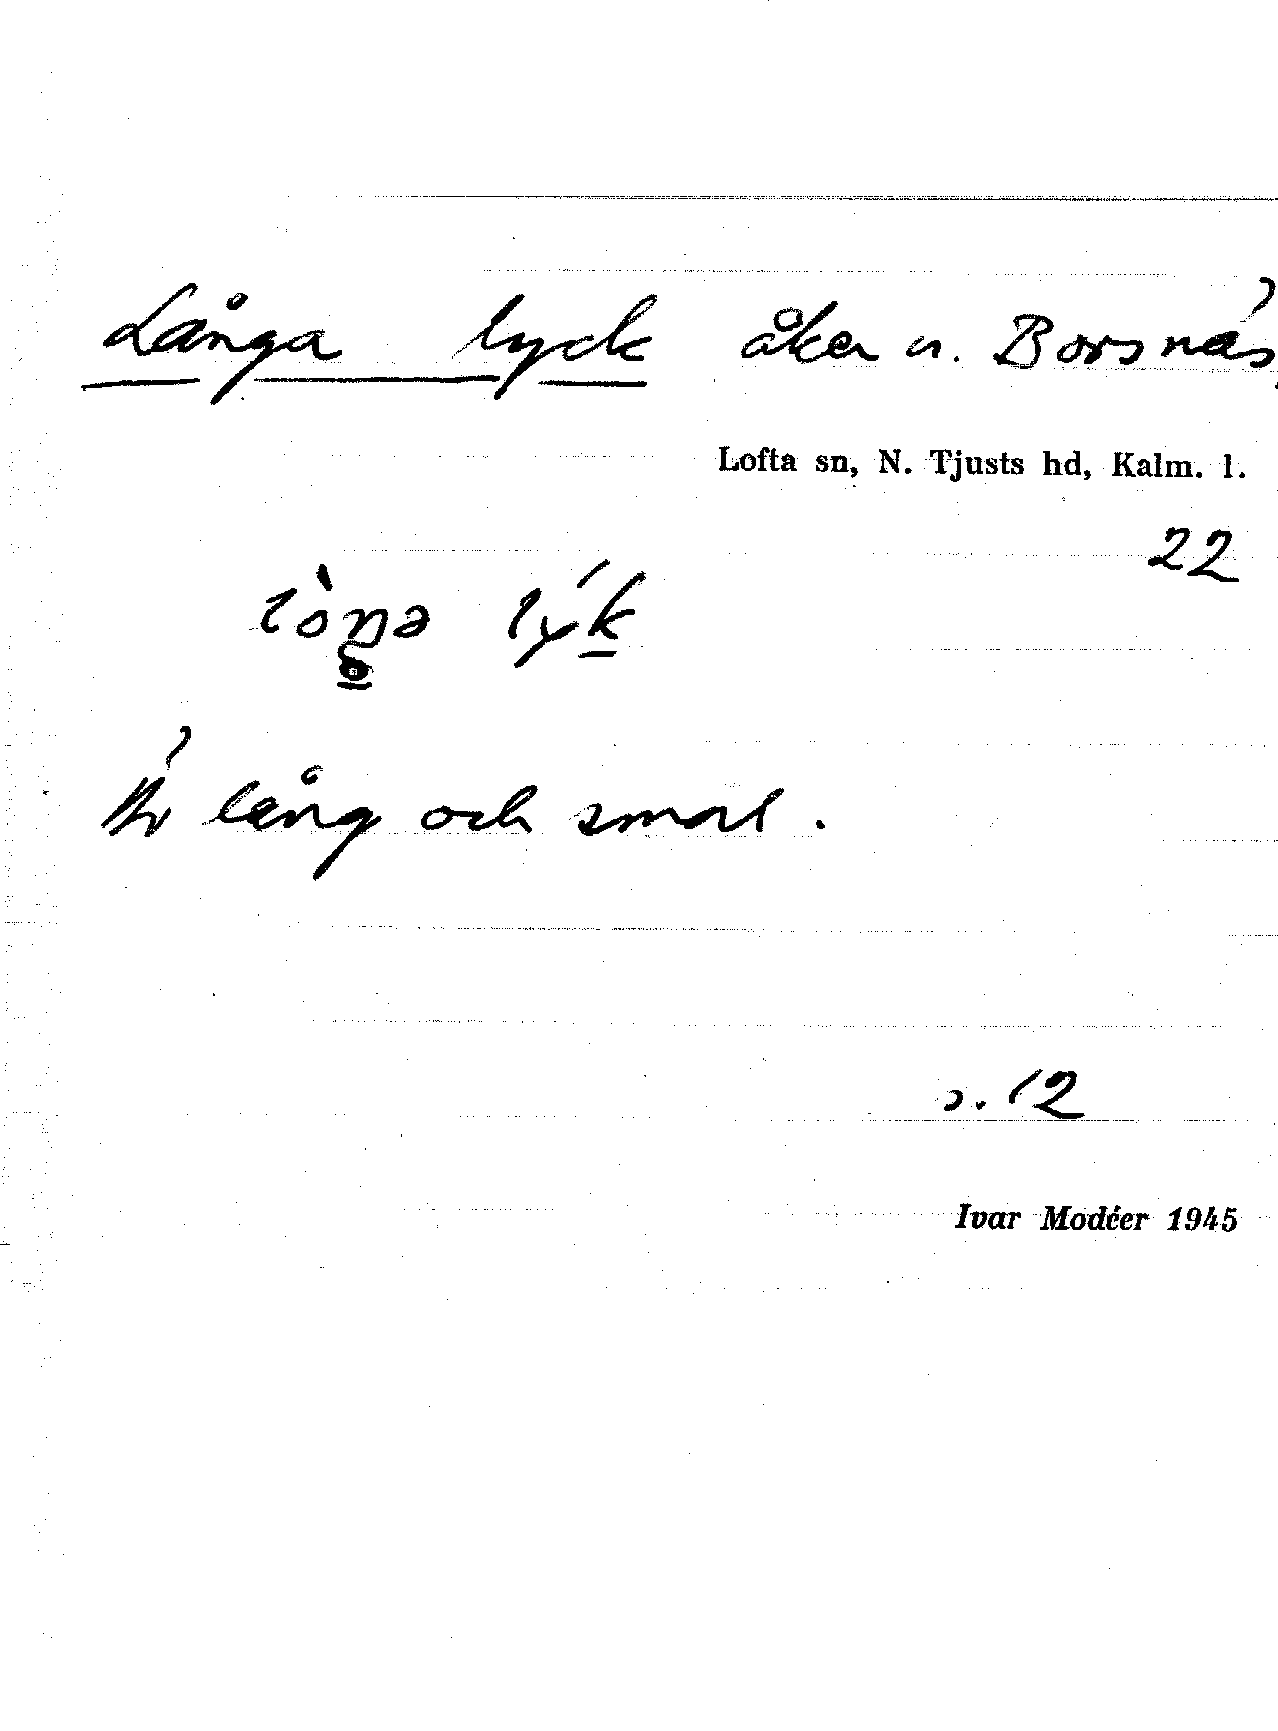 Långa lyck åker u. Borsnäs,
Lofta sn, N. Tjusts hd, Kalm. l.
22
Är lång och smal.
s. 12
Ivar Modéer 1945